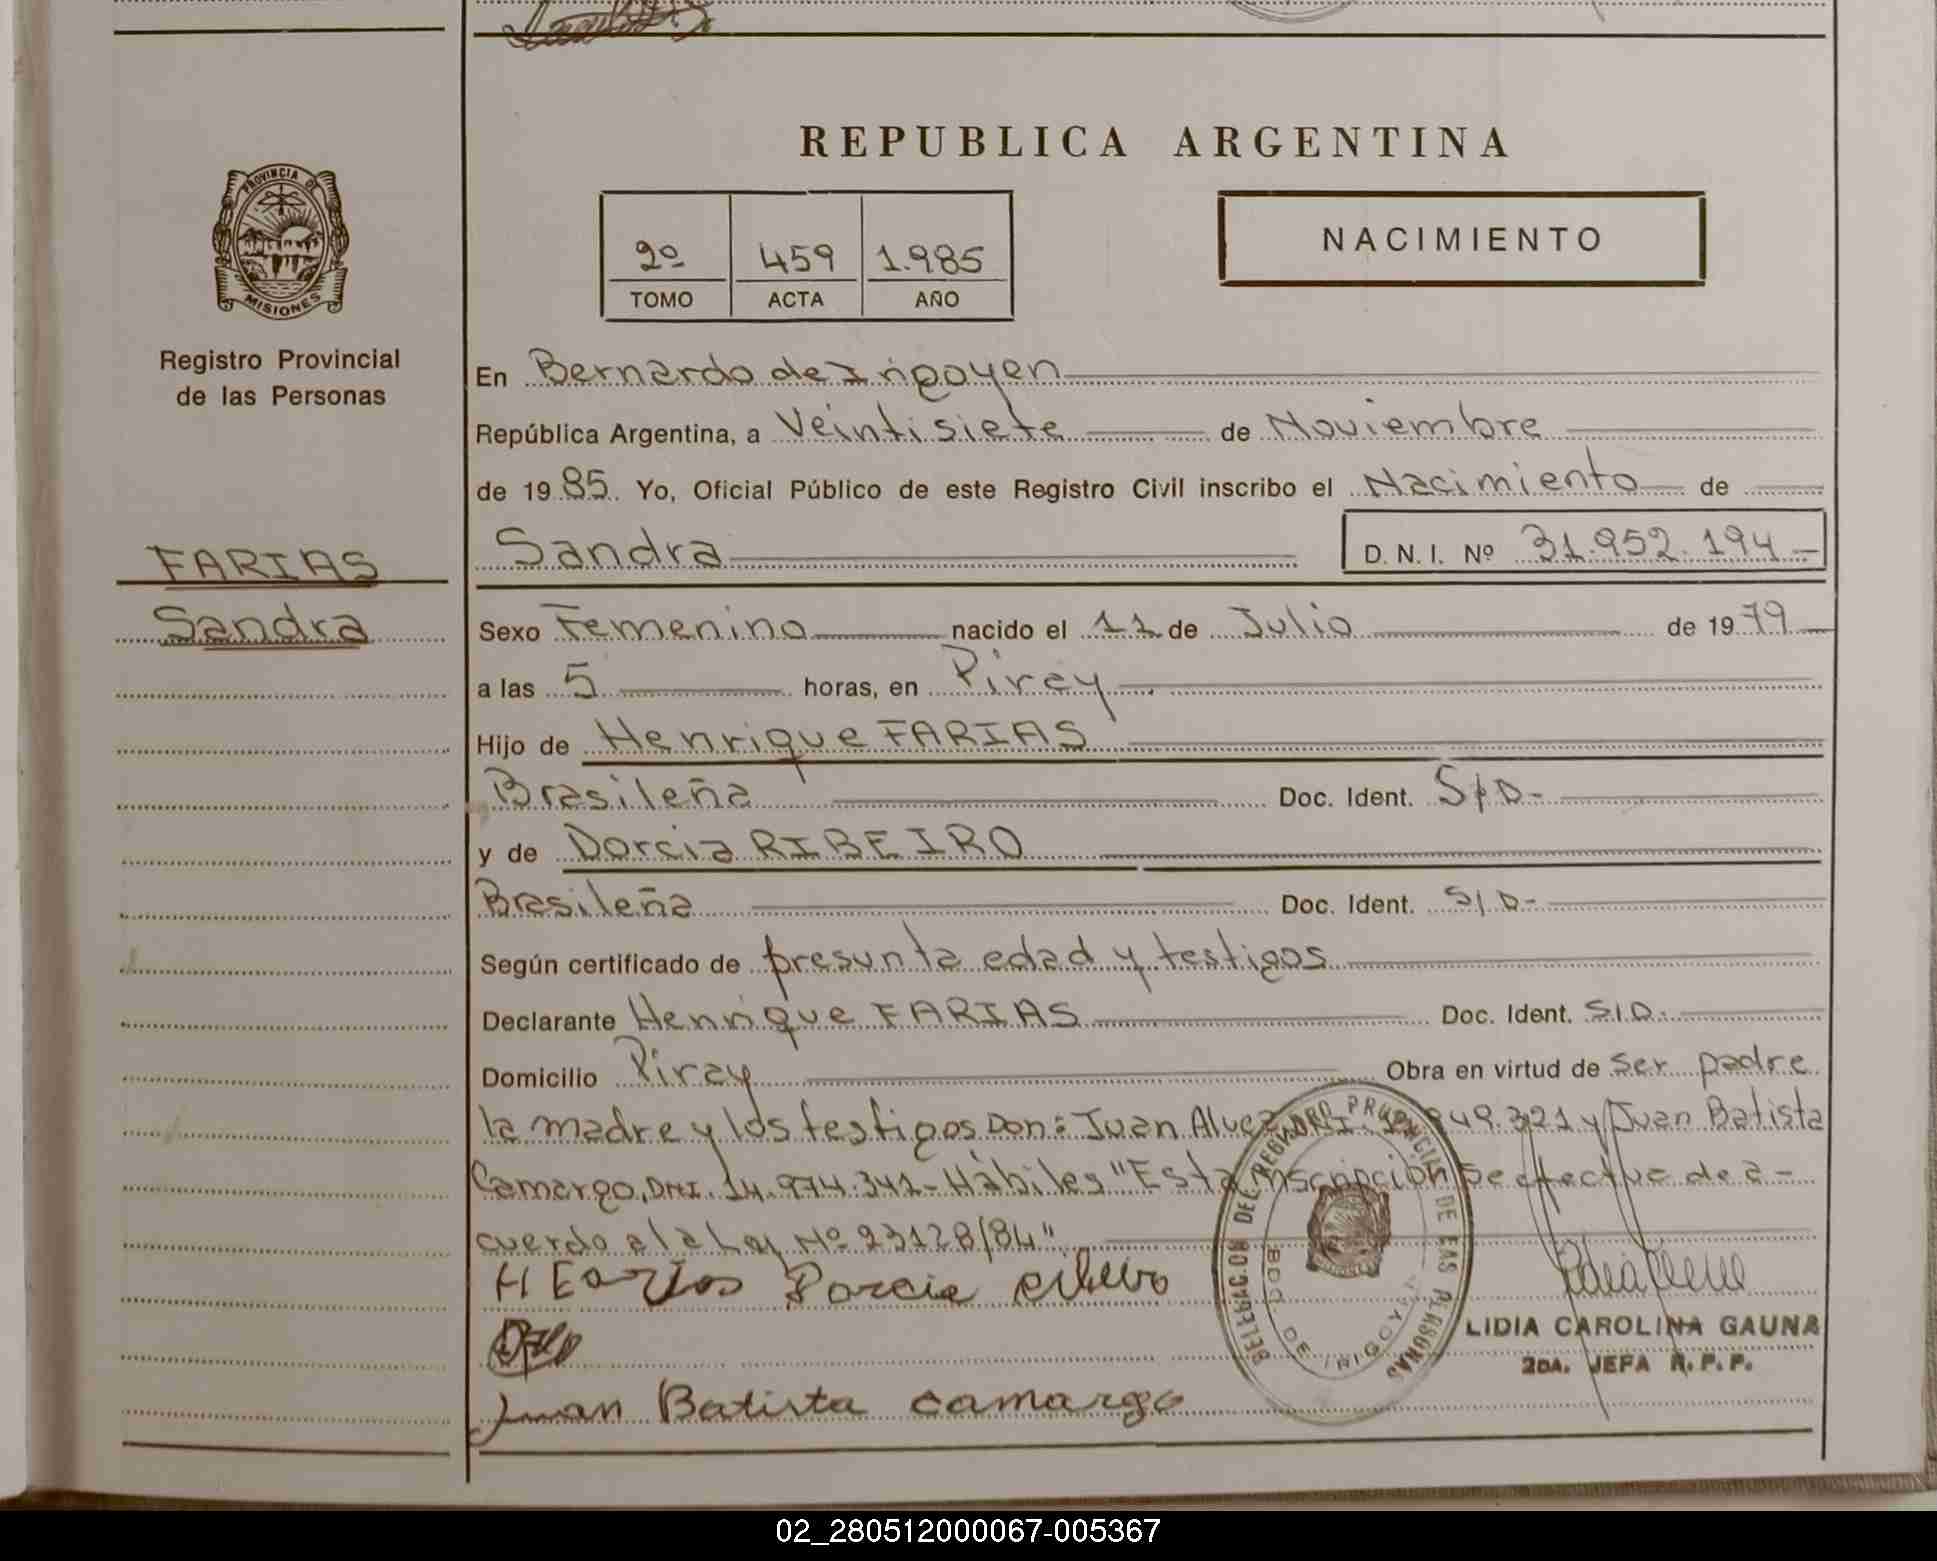 REPUBLICA ARGENTINA
PROVINCIA DE
MISIONES
Registro Provincial
de las Personas
FARIAS
Sandra
2º 459 1.985
TOMO ACTA AÑO
NACIMIENTO
En Bernardo de Irigoyen
República Argentina, a Veintisiete de Noviembre
de 1985. Yo, Oficial Público de este Registro Civil inscribo el Nacimiento de
Sandra D.N.I. Nº 31.952.194-
Sexo Femenino nacido el 11 de Julio de 1979
a las 5 horas, en Piray
Hijo de Henrique FARIAS
Brasileña Doc. Ident. S/D-
y de Dorcia RIBEIRO
Brasileña Doc. Ident. S/D-
Según certificado de presunta edad y testigos
Declarante Henrique FARIAS Doc. Ident. S/D.
Domicilio Piray Obra en virtud de ser padre
la madre y los testigos Don: Juan DNI. 949.321 y Juan Batista
Camargo, DNI. 14.974.341- Hábiles "Esta inscripción se efectua de a-
cuerdo a la Ley Nº 23128/84"
H Earios Dorcia ribeiro
Juan Batista camargo
DELEGACION DEL REGISTRO PROVINCIAL DE LAS PERSONAS
BDO. DE IRIGOYEN
LIDIA CAROLINA GAUNA
2DA. JEFA R.P.P.
02_280512000067-005367